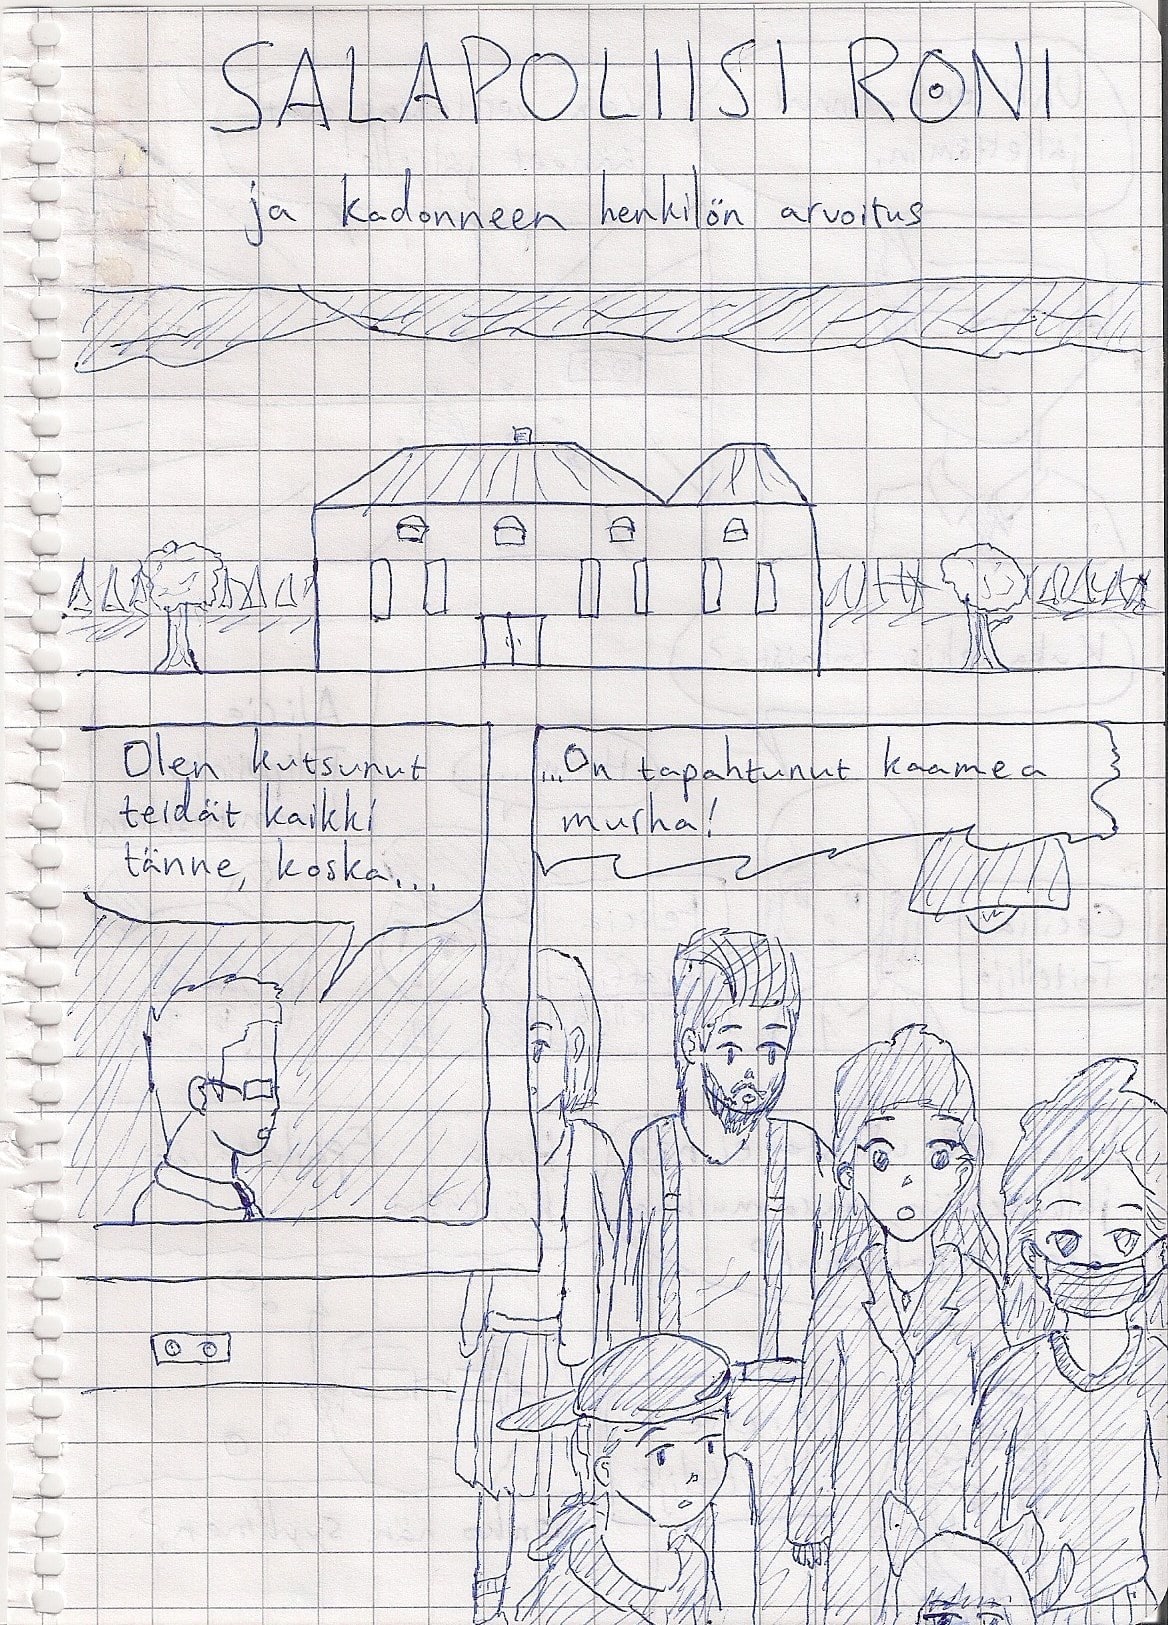 SALAPOLIISI RONI
ja kadonneen henkilön arvoitus
Olen kutsunut
teidät kaikki
tänne, koska...
...On tapahtunut kaamea
murha!